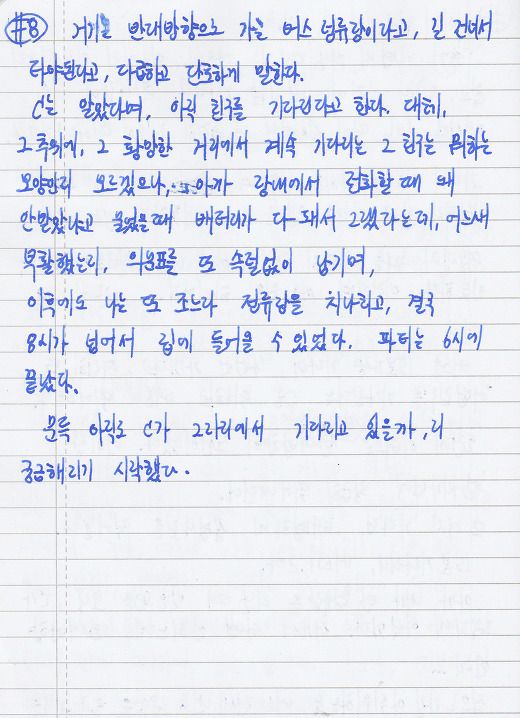 #8 거기는 반대방향으로 가는 버스 정류장이라고, 길 건너서
타야된다고, 다급하고 단호하게 말한다.
C는 알았다며, 아직 친구를 기다린다고 한다. 대체,
그 추위에, 그 황량한 거리에서 계속 기다리는 그 친구는 뭐하는
모양인지 모르겠으나, 아까 장내에서 전화할 때 왜
안받았냐고 물었을때 배터리가 다 돼서 그랬다는데, 어느새
부활했는지, 의문표를 또 속절없이 남기며,
이후에도 나는 또 조느라 정류장을 지나치고, 결국
8시가 넘어서 집에 들어올 수 있었다. 파티는 6시에
끝났다.
문득 아직도 C가 그자리에서 기다리고 있을까, 더
궁금해지기 시작했다.